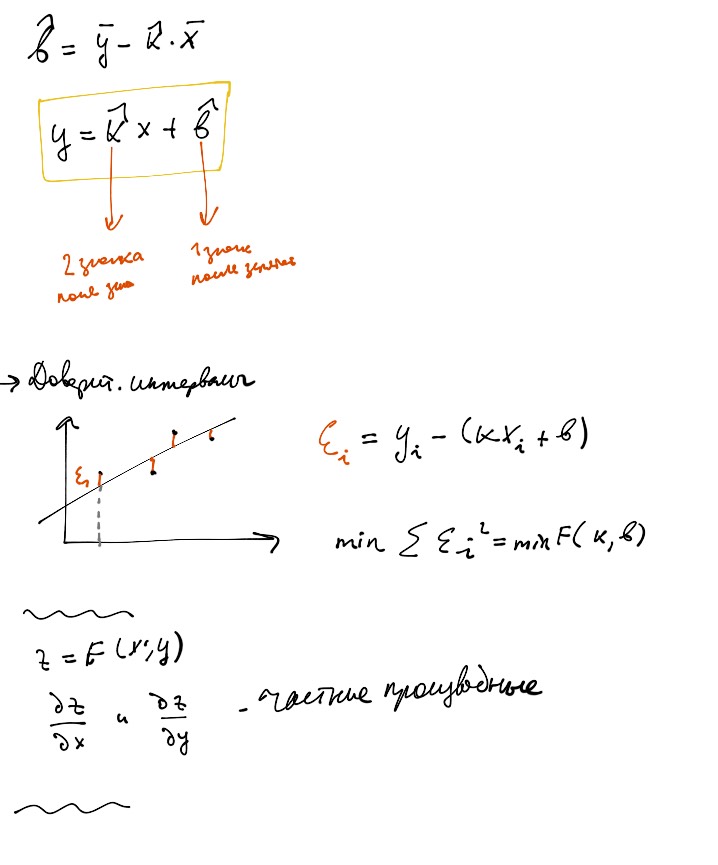 b̂ = ȳ − k̂ · x̄
y = k̂ x + b̂
2 значка 1 знак
после после запятой
→ Доверит. интервалы
ε₁
εᵢ = yᵢ − (kxᵢ + b)
min Σ εᵢ² = min F(k, b)
z = F(x, y)
∂z/∂x и ∂z/∂y - частные производные